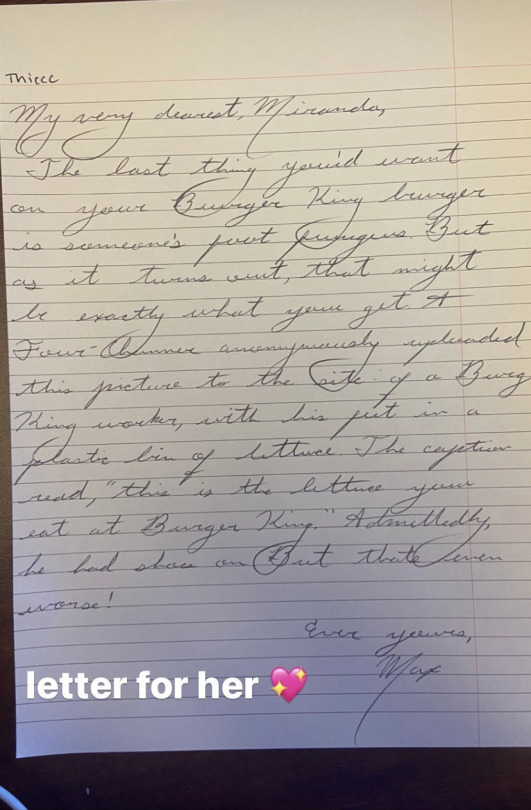 Thiccc
My very dearest, Miranda,
The last thing you'd want
on your Burger King burger
is someone's foot fungus. But
as it turns out, that might
be exactly what your get. A
Four-Channer anonymously uploaded
this picture to the site: of a Burg
King worker, with his feet in a
plastic bin of lettuce. The caption
read, "this is the lettuce your
eat at Burger King." Admittedly,
he had shoes on But thats even
worse!
Ever yours,
Max
letter for her 💖